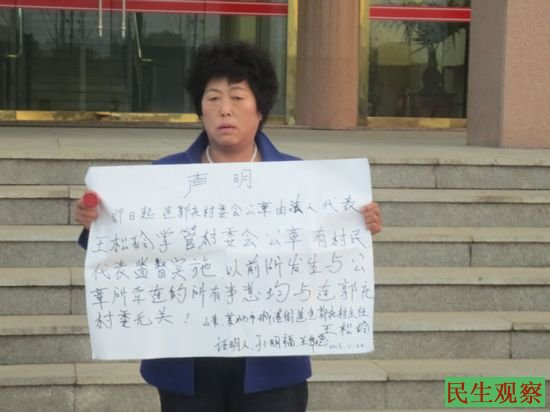 声 明
即日起 连郭庄村委会公章由法人代表
王松玲掌管村委会公章有村民
代表监督实施 以前所发生与公
章所牵连的所有事悥均与连郭庄
村委无关! 山东 莱州市城港路街道连郭庄村主任
王松玲
证明人 孙明福 2013.11.22
民生观察